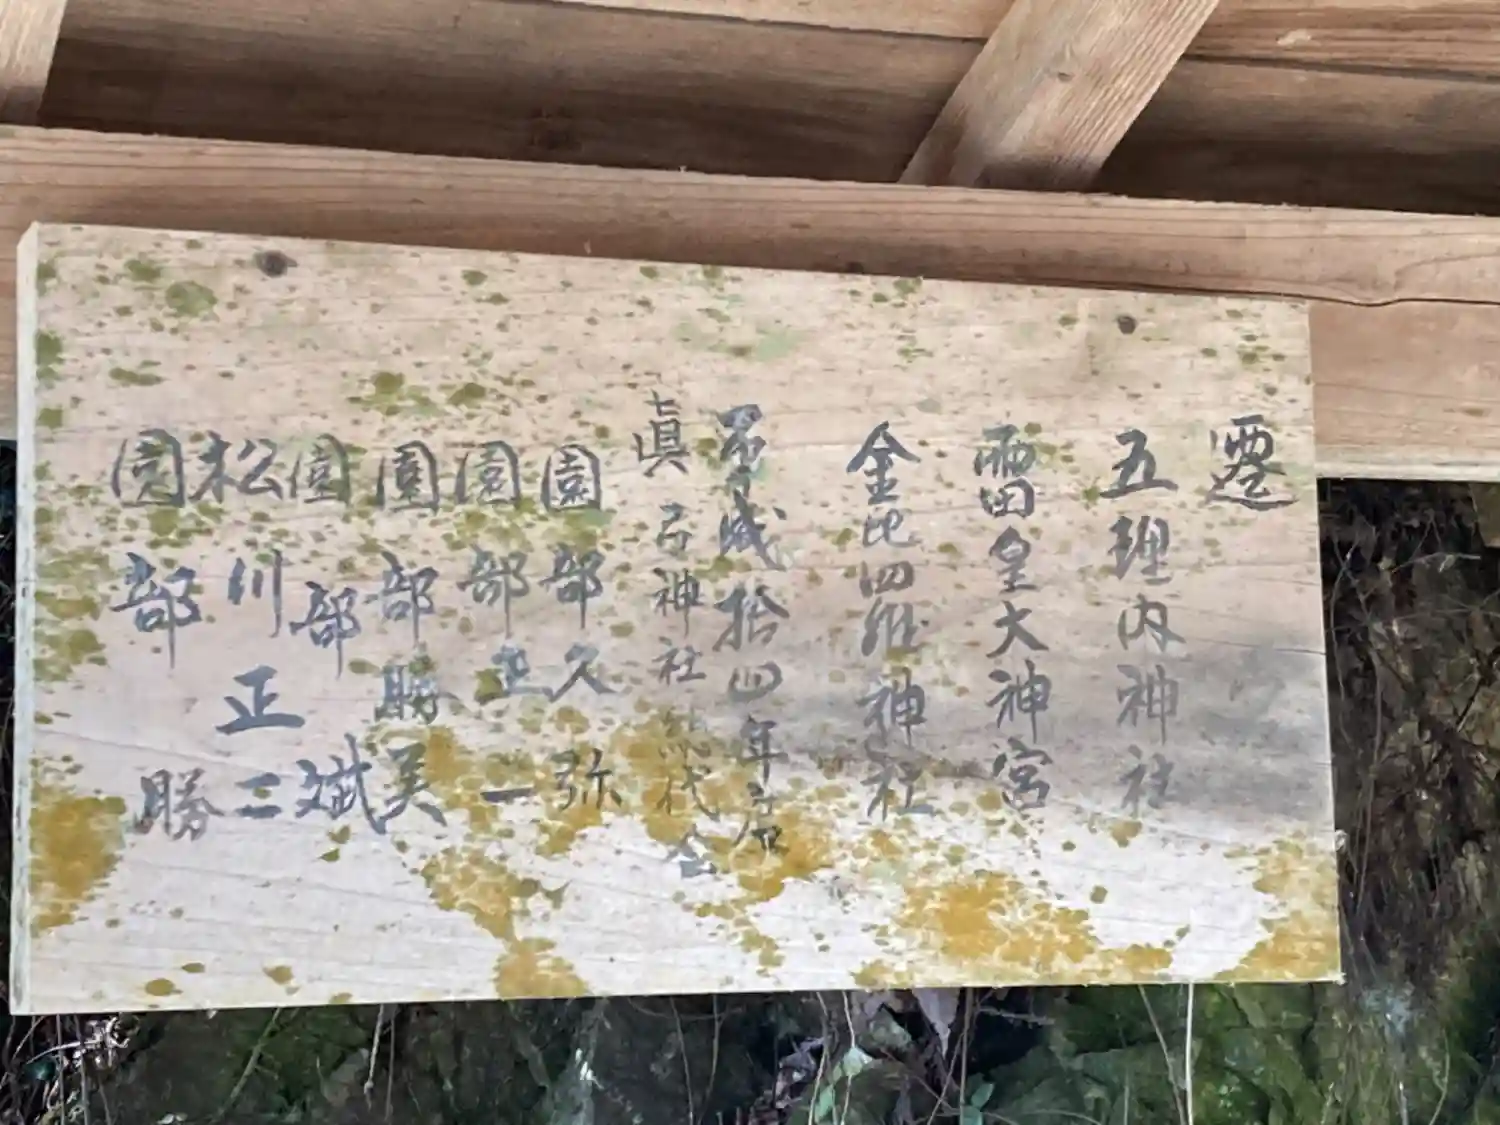 遷
五理内神社
雷皇大神宮
金毘羅神社
平成拾四年
眞弓神社総代会
園部久弥
園部正一
園部勝美
園部斌
松川正二
園部勝